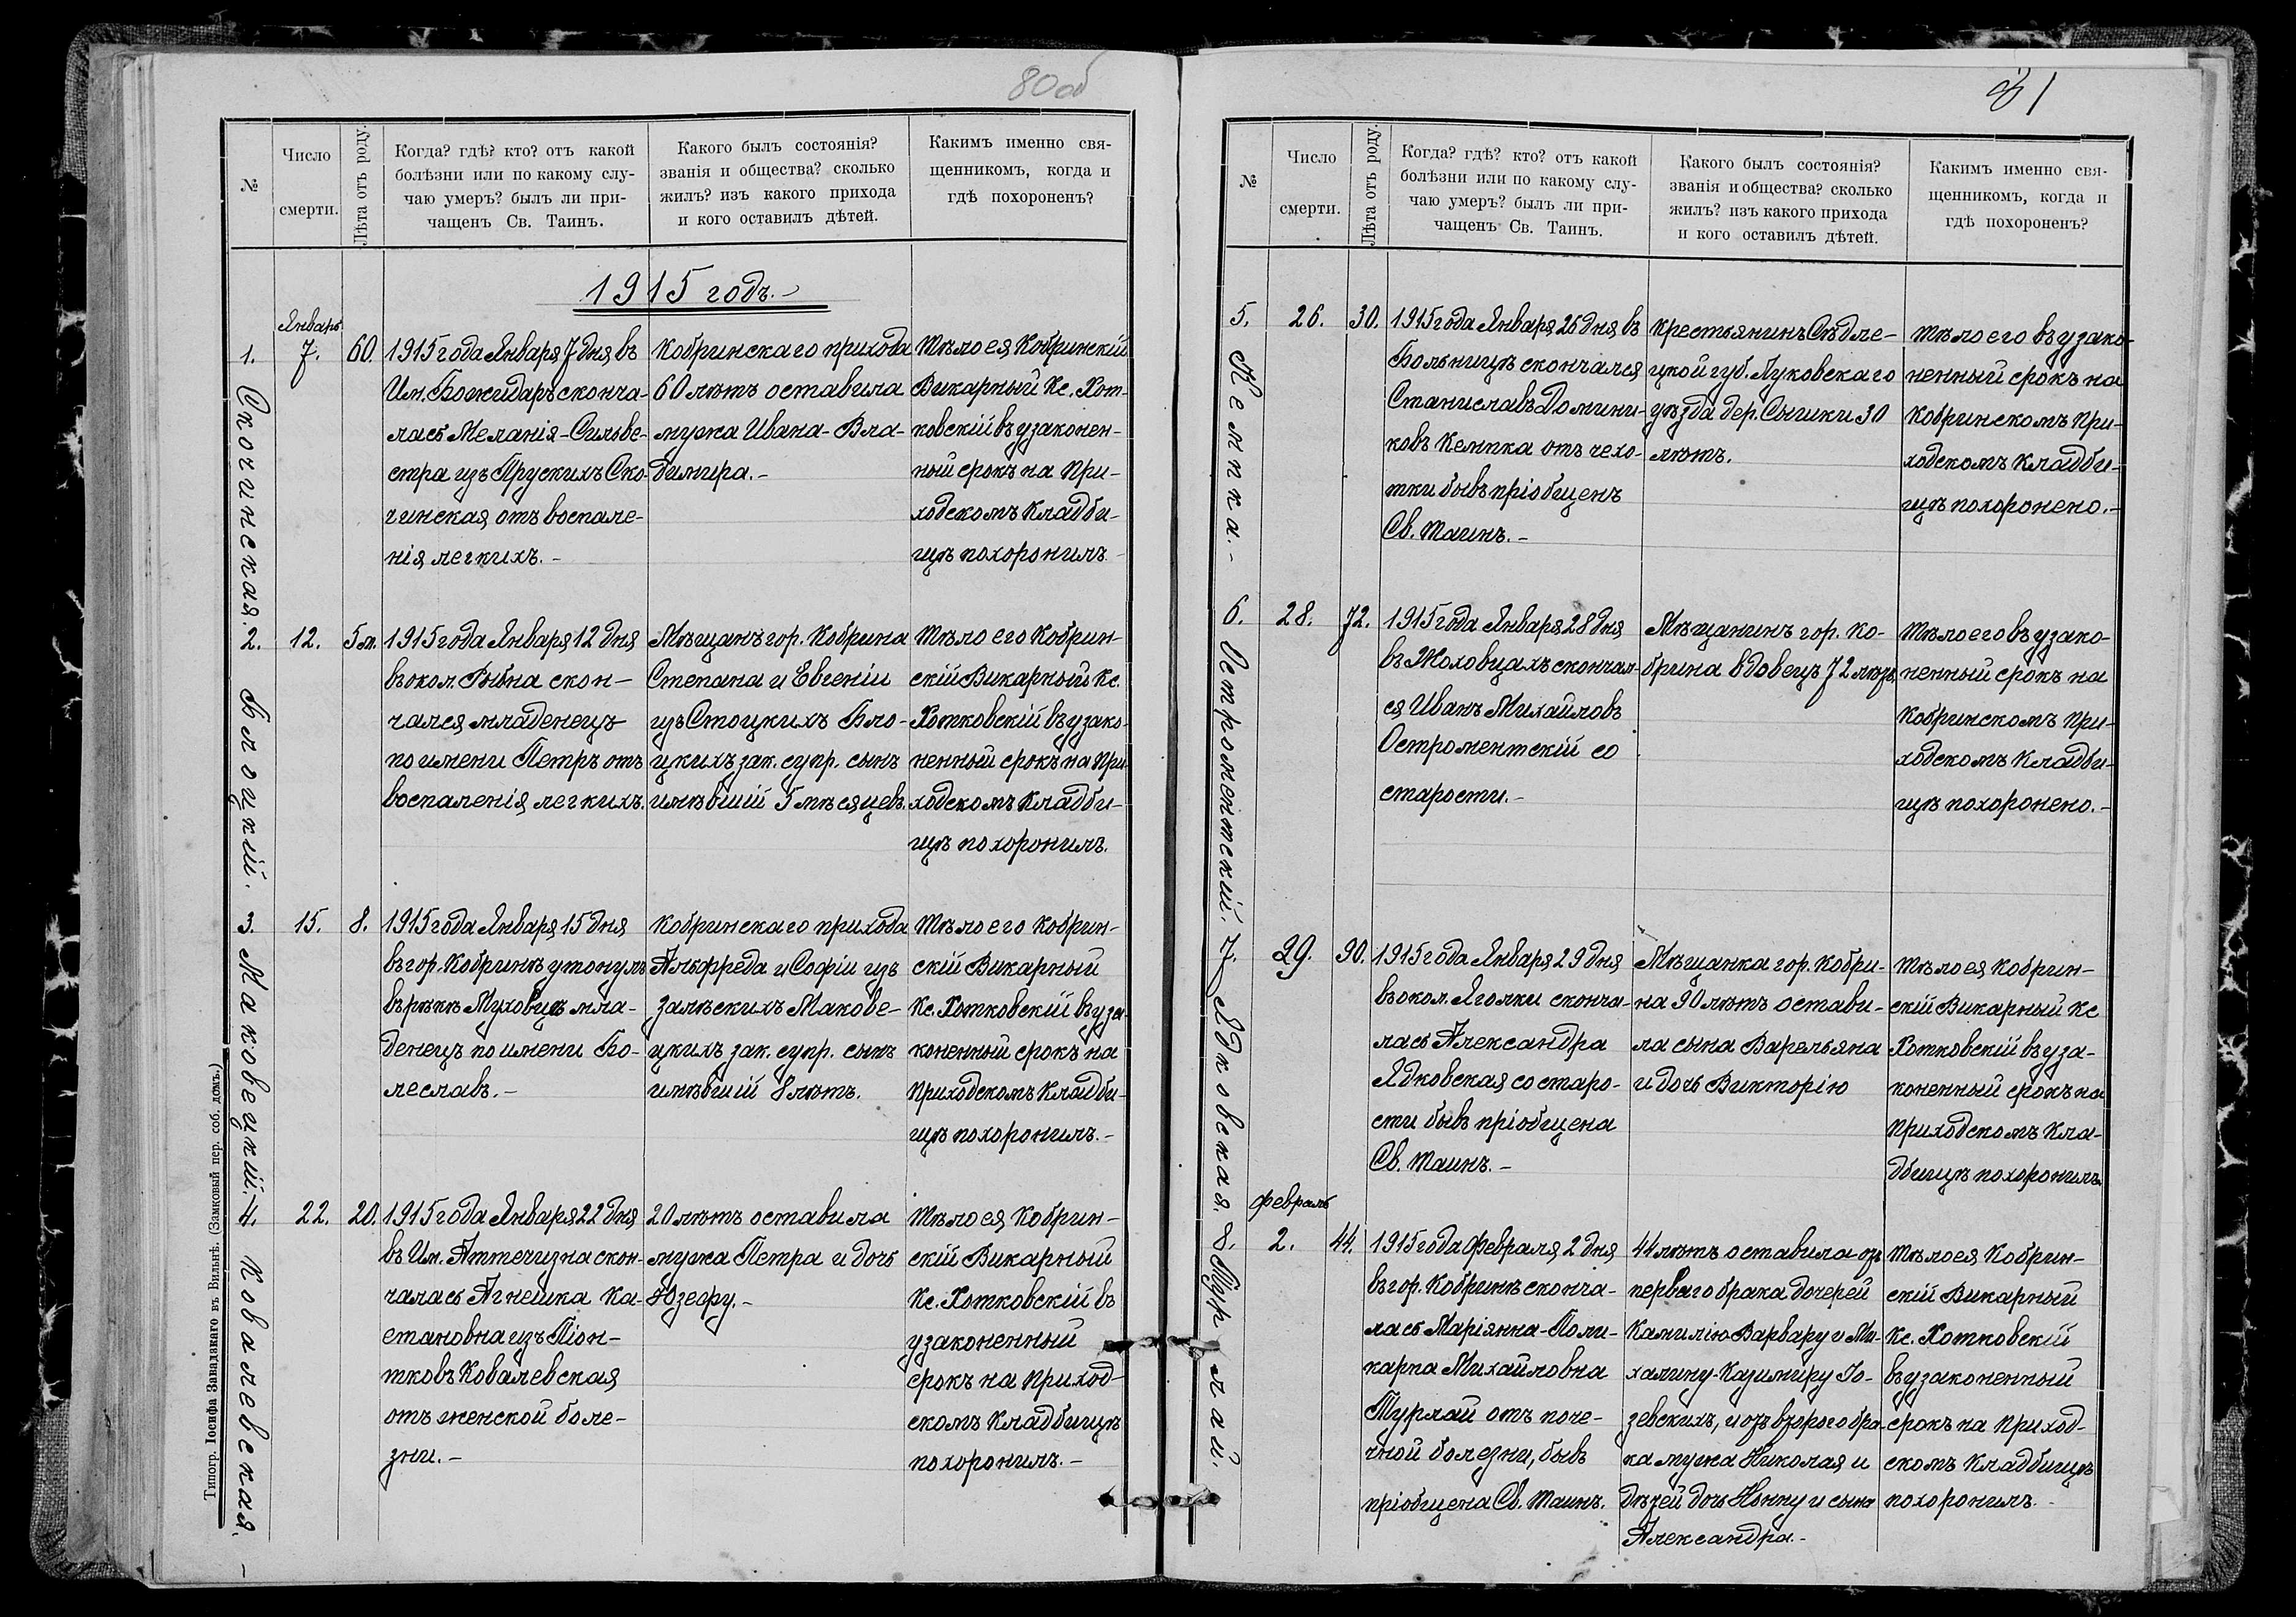 80об
№
Число
смерти.
Лѣта отъ роду.
Когда? гдѣ? кто? отъ какой
болѣзни или по какому слу-
чаю умеръ? былъ ли при-
чащенъ Св. Таинъ.
Какого былъ состоянія?
званія и общества? сколько
жилъ? изъ какого прихода
и кого оставилъ дѣтей.
Каким​ъ именно свя-
щенникомъ, когда и
гдѣ похороненъ?
1915 годъ.-
Скочинская.
1.
Январь
7.
60.
1915 года Января 7 дня въ
Им. Божидаръ сконча-
лась Меланія-Сильве-
стра изъ Прускихъ Ско-
чинская отъ воспале-
нія легкихъ.-
Кобринскаго прихода
60 лѣтъ оставила
мужа Ивана-Вла-
димира.-
Тѣло ея Кобринскій
Викарный Кс. Хот-
ковскій въ узаконен-
ный срокъ на При-
ходскомъ Кладби-
щѣ похоронилъ.-
Блоцкій.
2.
12.
5 м.
1915 года Января 12 дня
въ окол. Рыбна скон-
чался младенецъ
по имени Петръ отъ
воспаленія легкихъ.
Мѣщанъ гор. Кобрина
Степана и Евгеніи
изъ Стоцкихъ Бло-
цкихъ зак. супр. сынъ
имѣвшій 5 мѣсяцевъ.
Тѣло его Кобрин-
скій Викарный Кс.
Хотковскій въ узако-
ненный срокъ на При-
ходскомъ Кладби-
щѣ похоронилъ.
Маковецкій.-
3.
15.
8.
1915 года Января 15 дня
въ гор. Кобринѣ утонулъ
въ рѣкѣ Муховцѣ мла-
денецъ по имени Бо-
леславъ.-
Кобринскаго прихода
Альфреда и Софіи изъ
Залѣскихъ Макове-
цкихъ зак. супр. сынъ
имѣвшій 8 лѣтъ.
Тѣло его Кобрин-
скій Викарный
Кс. Хотковскій въ уза-
коненный срокъ на
Приходскомъ Кладби-
щѣ похоронилъ.-
Ковалевская.-
4.
22.
20.
1915 года Января 22 дня
въ Им. Аттечизна скон-
чалась Агнешка Ка-
етановна изъ Піон-
тковъ Ковалевская
отъ женской боле-
зни.-
20 лѣтъ оставила
мужа Петра и дочь
Юзефу.-
Тѣло ея Кобрин-
скій Викарный
Кс. Хотковскій въ
узаконенный
срокъ на Приход-
скомъ Кладбищѣ
похоронилъ.-
Типогр. Іосифа Завадзкаго въ Вильнѣ. (Замковый пер. соб. домъ.)
81
№
Число
смерти.
Лѣта отъ роду.
Когда? гдѣ? кто? отъ какой
болѣзни или по какому слу-
чаю умеръ? былъ ли при-
чащенъ Св. Таинъ.
Какого былъ состоянія?
званія и общества? сколько
жилъ? изъ какого прихода
и кого оставилъ дѣтей.
Какимъ именно свя-
щенникомъ, когда и
гдѣ похороненъ?
Кемпка.-
5.
26.
30.
1915 года Января 26 дня въ
Больницѣ скончался
Станиславъ Домини-
ковъ Кемпка отъ чехо-
тки бывъ пріобщенъ
Св. Таинъ.-
Крестьянинъ Сѣдле-
цкой губ. Луковскаго
уѣзда дер. Сышки 30
лѣтъ.
Тѣло его въ узако-
ненный срокъ на
Кобринскомъ При-
ходскомъ Кладби-
щѣ похоронено.-
Остроментскій.
6.
28.
72.
1915 года Января 28 дня
въ Жоховцахъ скончал-
ся Иванъ Михайловъ
Остроментскій со
старости.-
Мѣщанинъ гор. Ко-
брина вдовецъ 72 лѣтъ.
Тѣло его въ узако-
ненный срокъ на
Кобринскомъ При-
ходскомъ Кладби-
щѣ похоронено.-
Ядковская.
7.
29.
90.
1915 года Января 29 дня
въ окол. Яголки сконча-
лась Александра
Ядковская со старо-
сти бывъ пріобщена
Св. Таинъ.-
Мѣщанка гор. Кобри-
на 90 лѣтъ остави-
ла сына Варельяна
и дочь Викторію
Тѣло ея Кобрин-
скій Викарный Кс
Хотковскій въ уза-
коненный срокъ на
Приходскомъ Кла-
дбищѣ похоронилъ.
Турлай.
8.
Февраль
2.
44.
1915 года Февраля 2 дня
въ гор. Кобринѣ сконча-
лась Маріянна-Поли-
карпа Михайловна
Турлай отъ поче-
чной болезни, бывъ
пріобщена Св. Таинъ.
44 лѣтъ оставила отъ
перваго брака дочерей
Камилію-Варвару и Ми-
халину-Казимиру Го-
зевскихъ, и отъ второго бра-
ка мужа Николая и
дѣтей дочь Нонну и сына
Александра.-
Тѣло ея Кобрин-
скій Викарный
Кс. Хотковскій
въ узаконенный
срокъ на Приход-
скомъ Кладбищѣ
похоронилъ.-